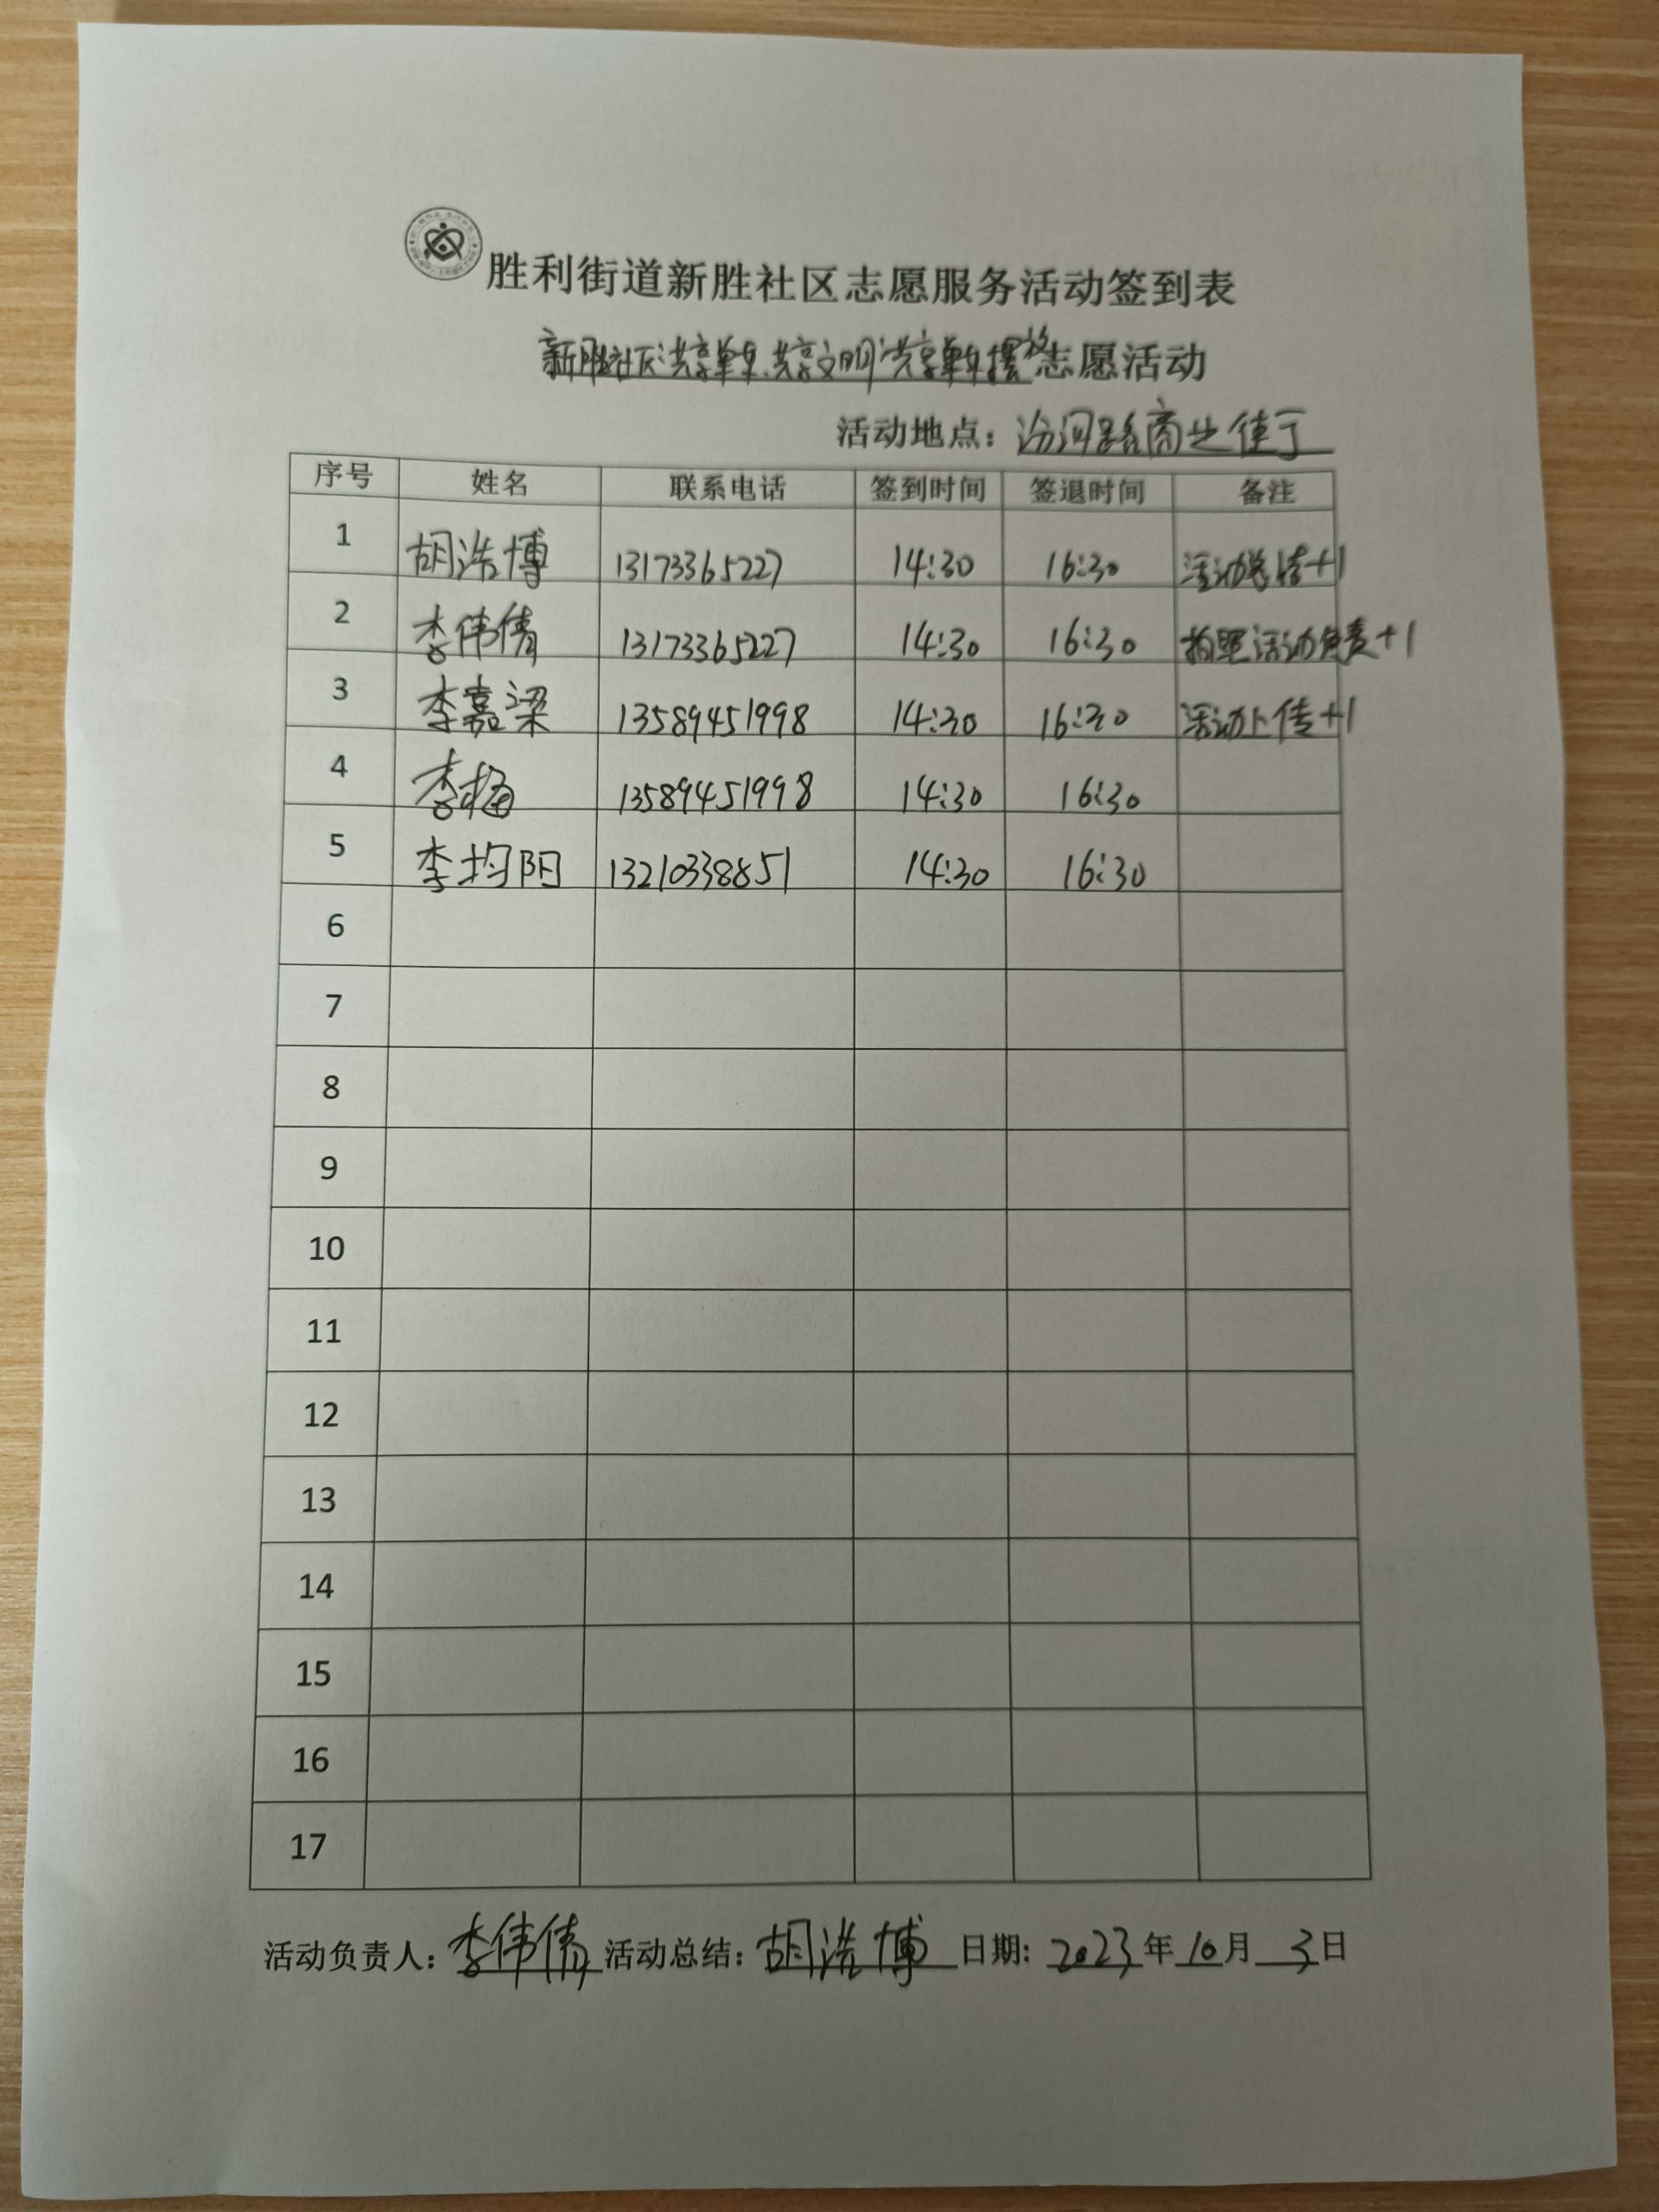 胜利街道新胜社区志愿服务活动签到表
新胜社区“共享单车、共享文明”共享单车摆放志愿活动
活动地点：汾河路商业街
序号 姓名 联系电话 签到时间 签退时间 备注
1 胡浩博 13173365227 14:30 16:30 活动总结+1
2 李伟倩 13173365227 14:30 16:30 拍照活动负责+1
3 李嘉梁 13589451998 14:30 16:30 活动上传+1
4 李梅 13589451998 14:30 16:30
5 李均阳 13210338851 14:30 16:30
6
7
8
9
10
11
12
13
14
15
16
17
活动负责人：李伟倩 活动总结：胡浩博 日期：2023年10月3日